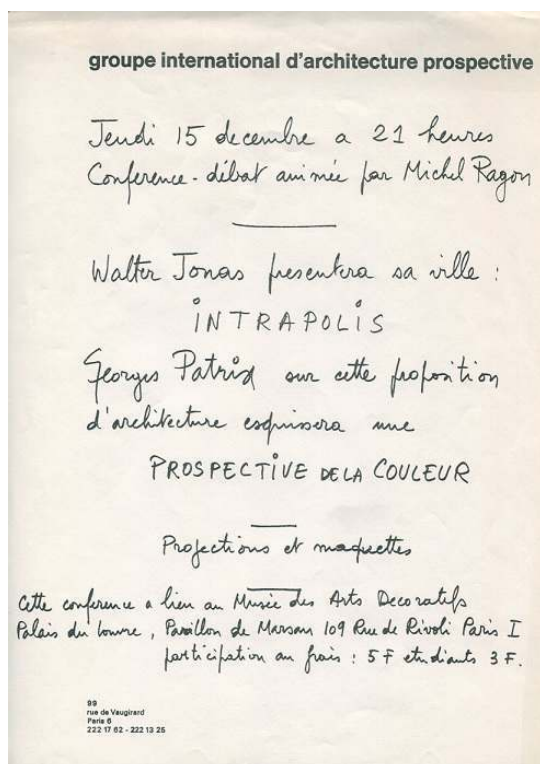 groupe international d'architecture prospective
Jeudi 15 decembre a 21 heures
Conference-débat animée par Michel Ragon
Walter Jonas presentera sa ville :
INTRAPOLIS
Georges Patrix sur cette proposition
d'architecture esquissera une
PROSPECTIVE DE LA COULEUR
Projections et maquettes
Cette conference a lieu au Musée des Arts Decoratifs
Palais du Louvre, Pavillon de Marsan 109 Rue de Rivoli Paris I
participation au frais : 5 F etudiants 3 F.
99
rue de Vaugirard
Paris 6
222 17 62 - 222 13 25